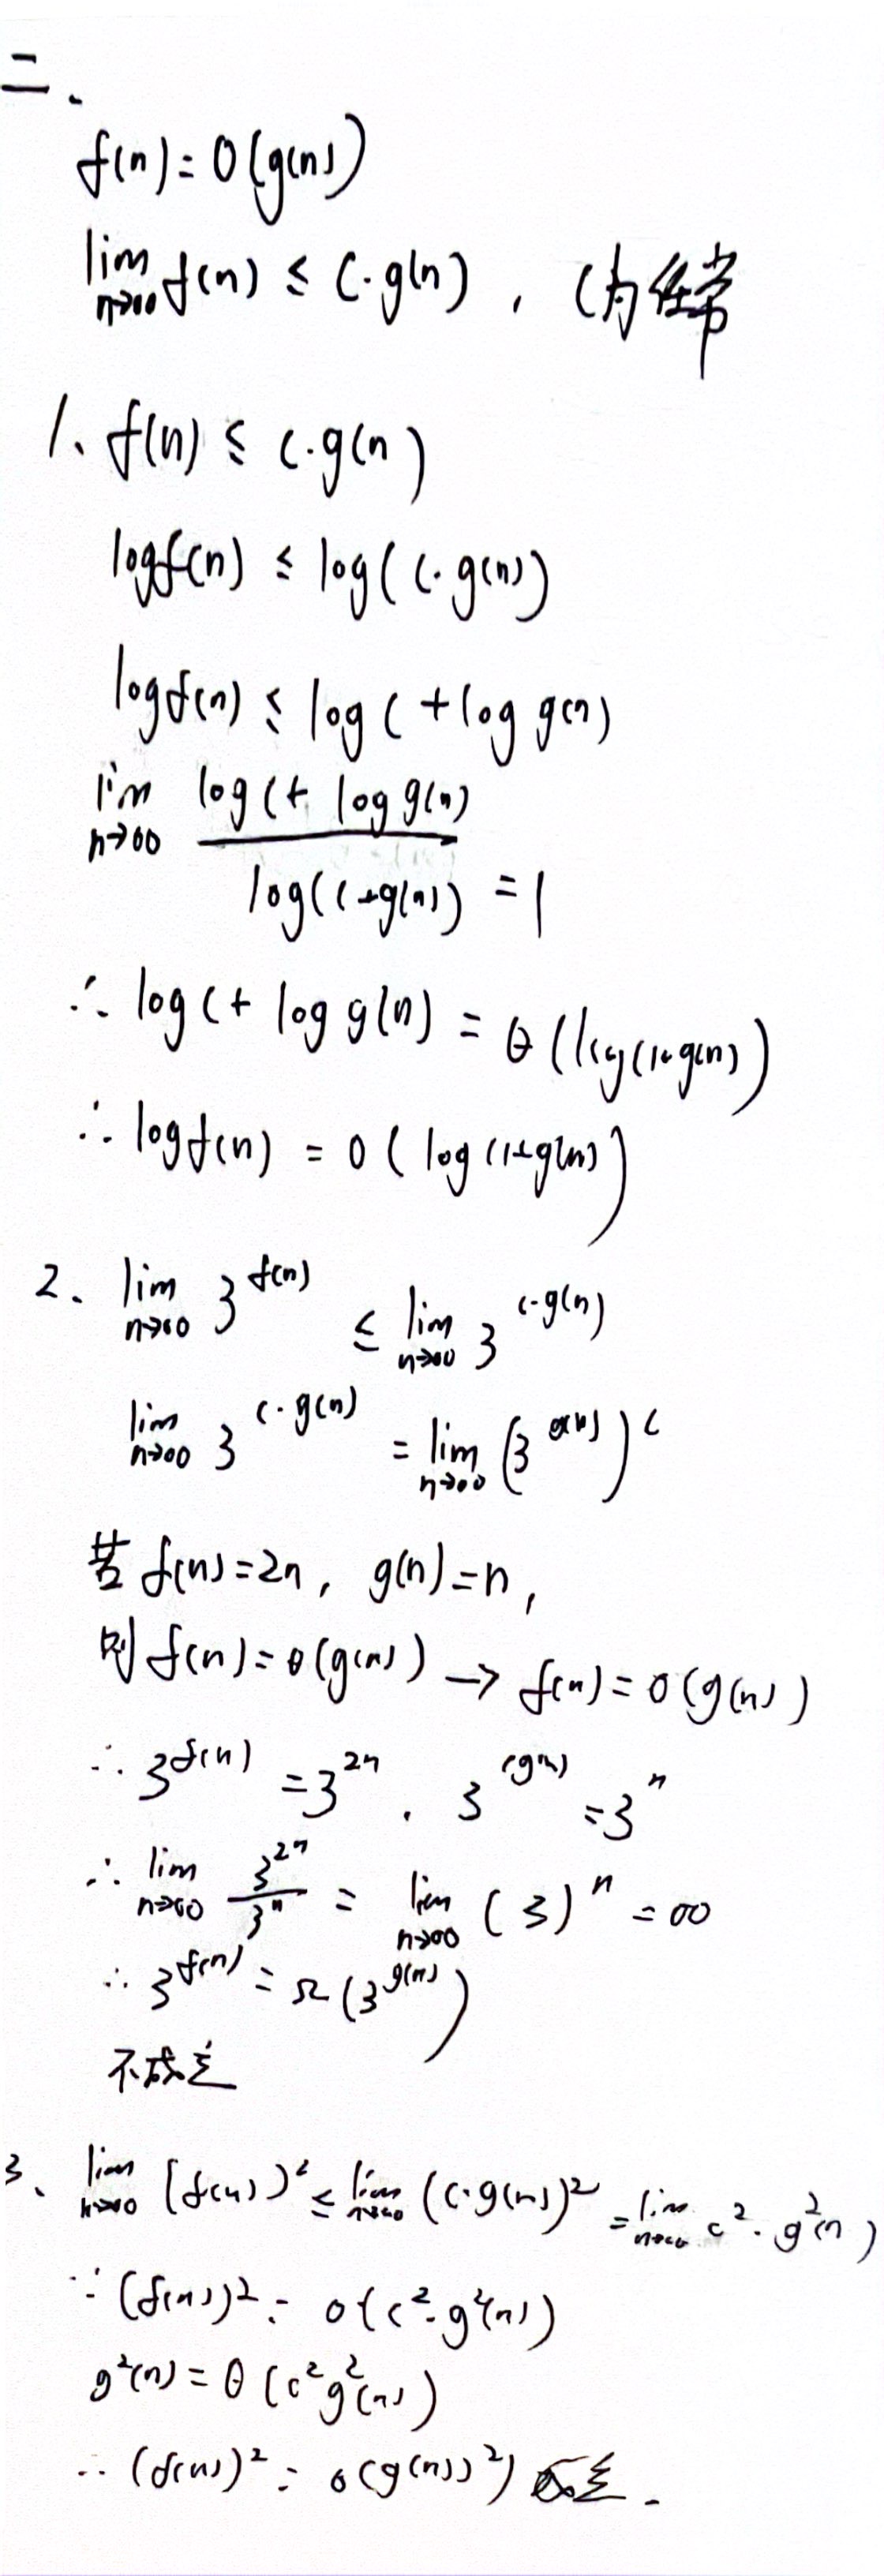 二、
f(n)=O(g(n))
lim n→∞ f(n) ≤ C·g(n), C为任常
1、f(n) ≤ C·g(n)
logf(n) ≤ log(C·g(n))
logf(n) ≤ log C + log g(n)
lim n→∞ (log C + log g(n)) / log(1+g(n)) = 1
∴ log C + log g(n) = θ(log(1+g(n))
∴ logf(n) = O(log(1+g(n))
2、lim n→∞ 3^f(n) ≤ lim n→∞ 3^C·g(n)
lim n→∞ 3^C·g(n) = lim n→∞ (3^g(n))^C
若 f(n)=2n, g(n)=n,
则 f(n)=θ(g(n)) → f(n)=O(g(n))
∴ 3^f(n) = 3^2n, 3^(g(n) = 3^n
∴ lim n→∞ 3^2n / 3^n = lim n→∞ (3)^n = ∞
∴ 3^f(n) = Ω(3^g(n))
不成立
3、lim n→∞ (f(n))^2 ≤ lim n→∞ (C·g(n))^2 = lim n→∞ c^2·g^2(n)
∵ (f(n))^2 = O(c^2·g^2(n))
g^2(n) = θ(c^2 g^2(n))
∴ (f(n))^2 = O(g(n))^2) 成立.